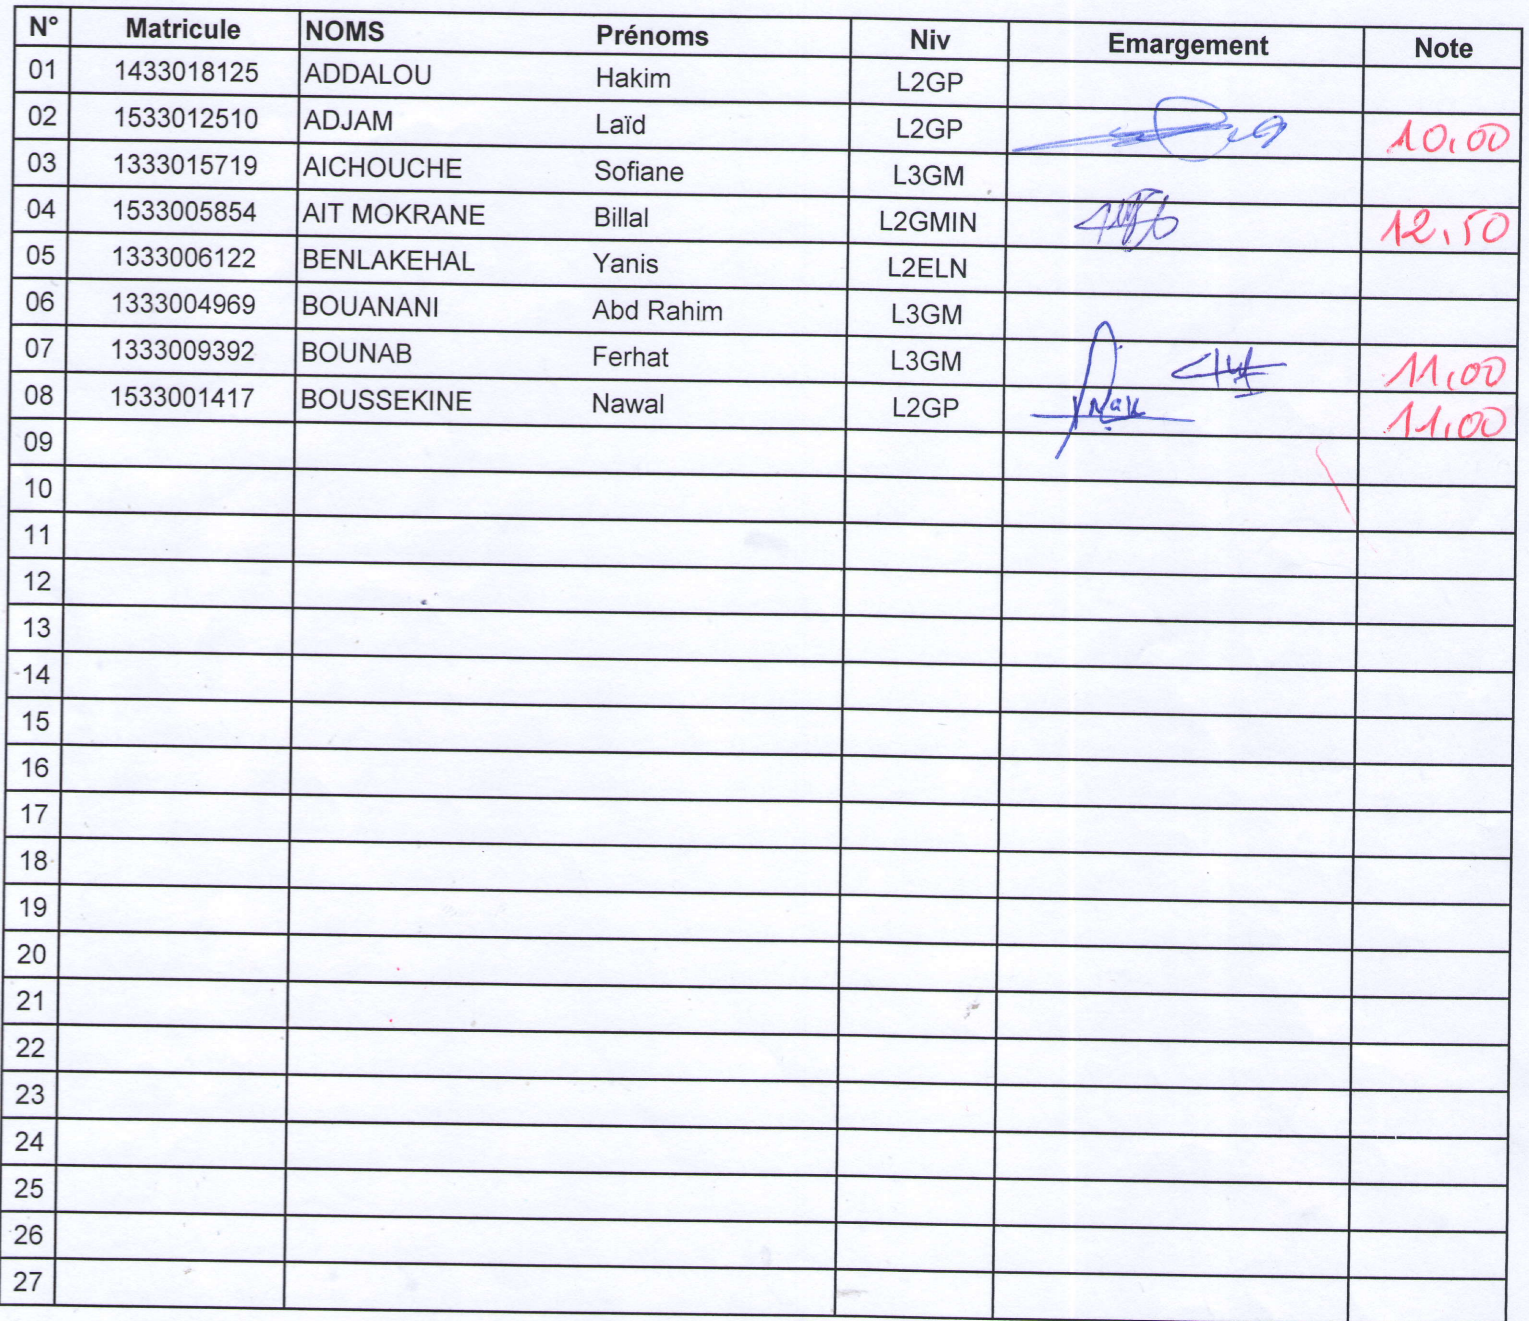 N° Matricule NOMS Prénoms Niv Emargement Note
01 1433018125 ADDALOU Hakim L2GP
02 1533012510 ADJAM Laïd L2GP 10,00
03 1333015719 AICHOUCHE Sofiane L3GM
04 1533005854 AIT MOKRANE Billal L2GMIN 12,50
05 1333006122 BENLAKEHAL Yanis L2ELN
06 1333004969 BOUANANI Abd Rahim L3GM
07 1333009392 BOUNAB Ferhat L3GM 11,00
08 1533001417 BOUSSEKINE Nawal L2GP 11,00
09
10
11
12
13
14
15
16
17
18
19
20
21
22
23
24
25
26
27